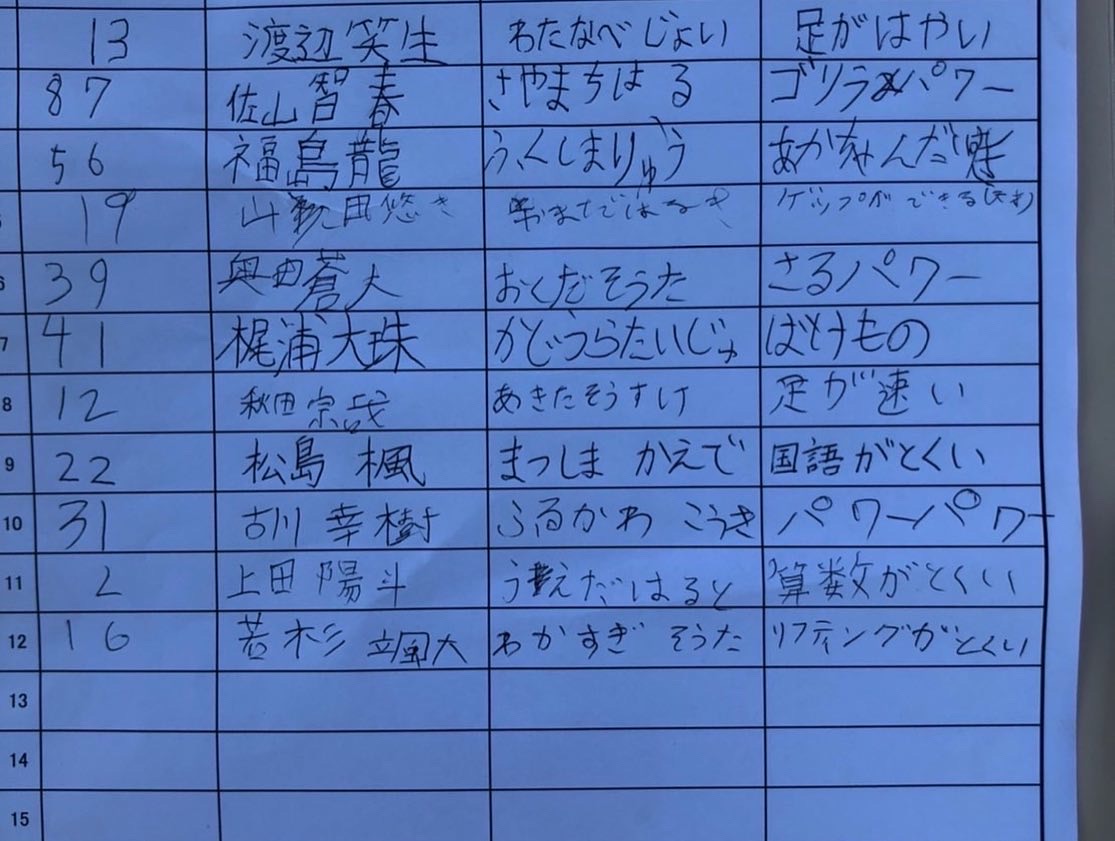 13 渡辺笑生 わたなべじょい 足がはやい
87 佐山智春 さやまちはる ゴリラパワー
56 福島龍 ふくしまりゅう あかちゃんだ
19 山 田悠き はるき ゲップができる
6 39 奥田蒼大 おくだそうた さるパワー
7 41 梶浦大珠 かじうらたいじゅ ばけもの
8 12 秋田宗哉 あきたそうすけ 足が速い
9 22 松島 楓 まつしま かえで 国語がとくい
10 31 古川 幸樹 ふるかわ こうき パワーパワー
11 2 上田陽斗 うえだはると 算数がとくい
12 16 若杉 颯大 わかすぎ そうた リフティングがとくい
13
14
15